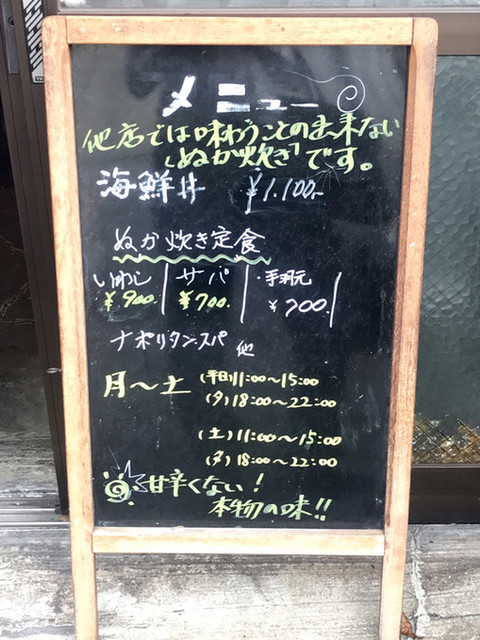 メニュー
他店では味わうことの出来ない
「ぬか炊き」です。
海鮮丼 ¥1.100-
ぬか炊き定食
いわし サバ ・手羽元
¥900. ¥700. ¥700.
ナポリタンスパ 他
月〜土 (平日)11:00〜15:00
(夕)18:00〜22:00
(土)11:00〜15:00
(夕)18:00〜22:00
甘辛くない!
本物の味!!